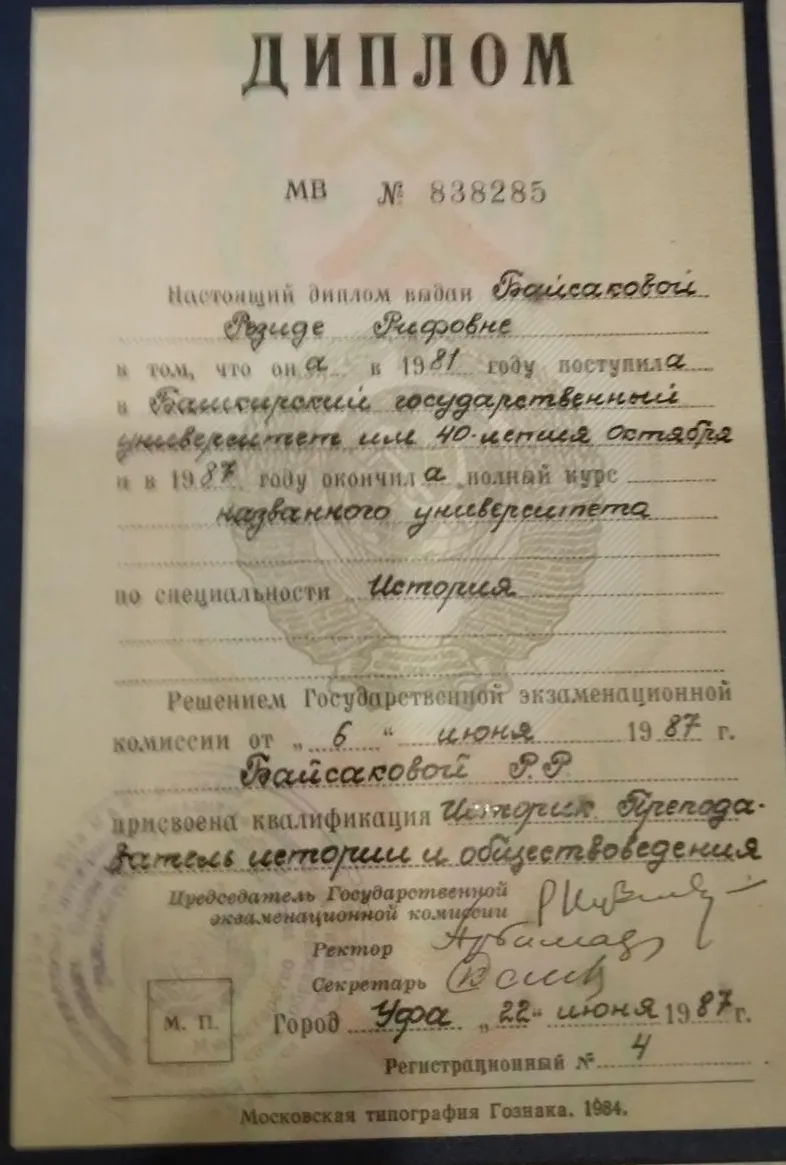 ДИПЛОМ
МВ № 838285
Настоящий диплом выдан Байсаковой
Резиде Рифовне
в том, что она в 1981 году поступила
в Башкирский государственный
университет им 40-летия Октября
и в 1987 году окончила полный курс
названного университета
по специальности История
Решением Государственной экзаменационной
комиссии от „6“ июня 1987 г.
Байсаковой Р.Р
присвоена квалификация Историк Препода-
ватель истории и обществоведения
Председатель Государственной
экзаменационной комиссии
Ректор
Секретарь
М. П.
Город Уфа „22“ июня 1987 г.
Регистрационный № 4
Московская типография Гознака. 1984.